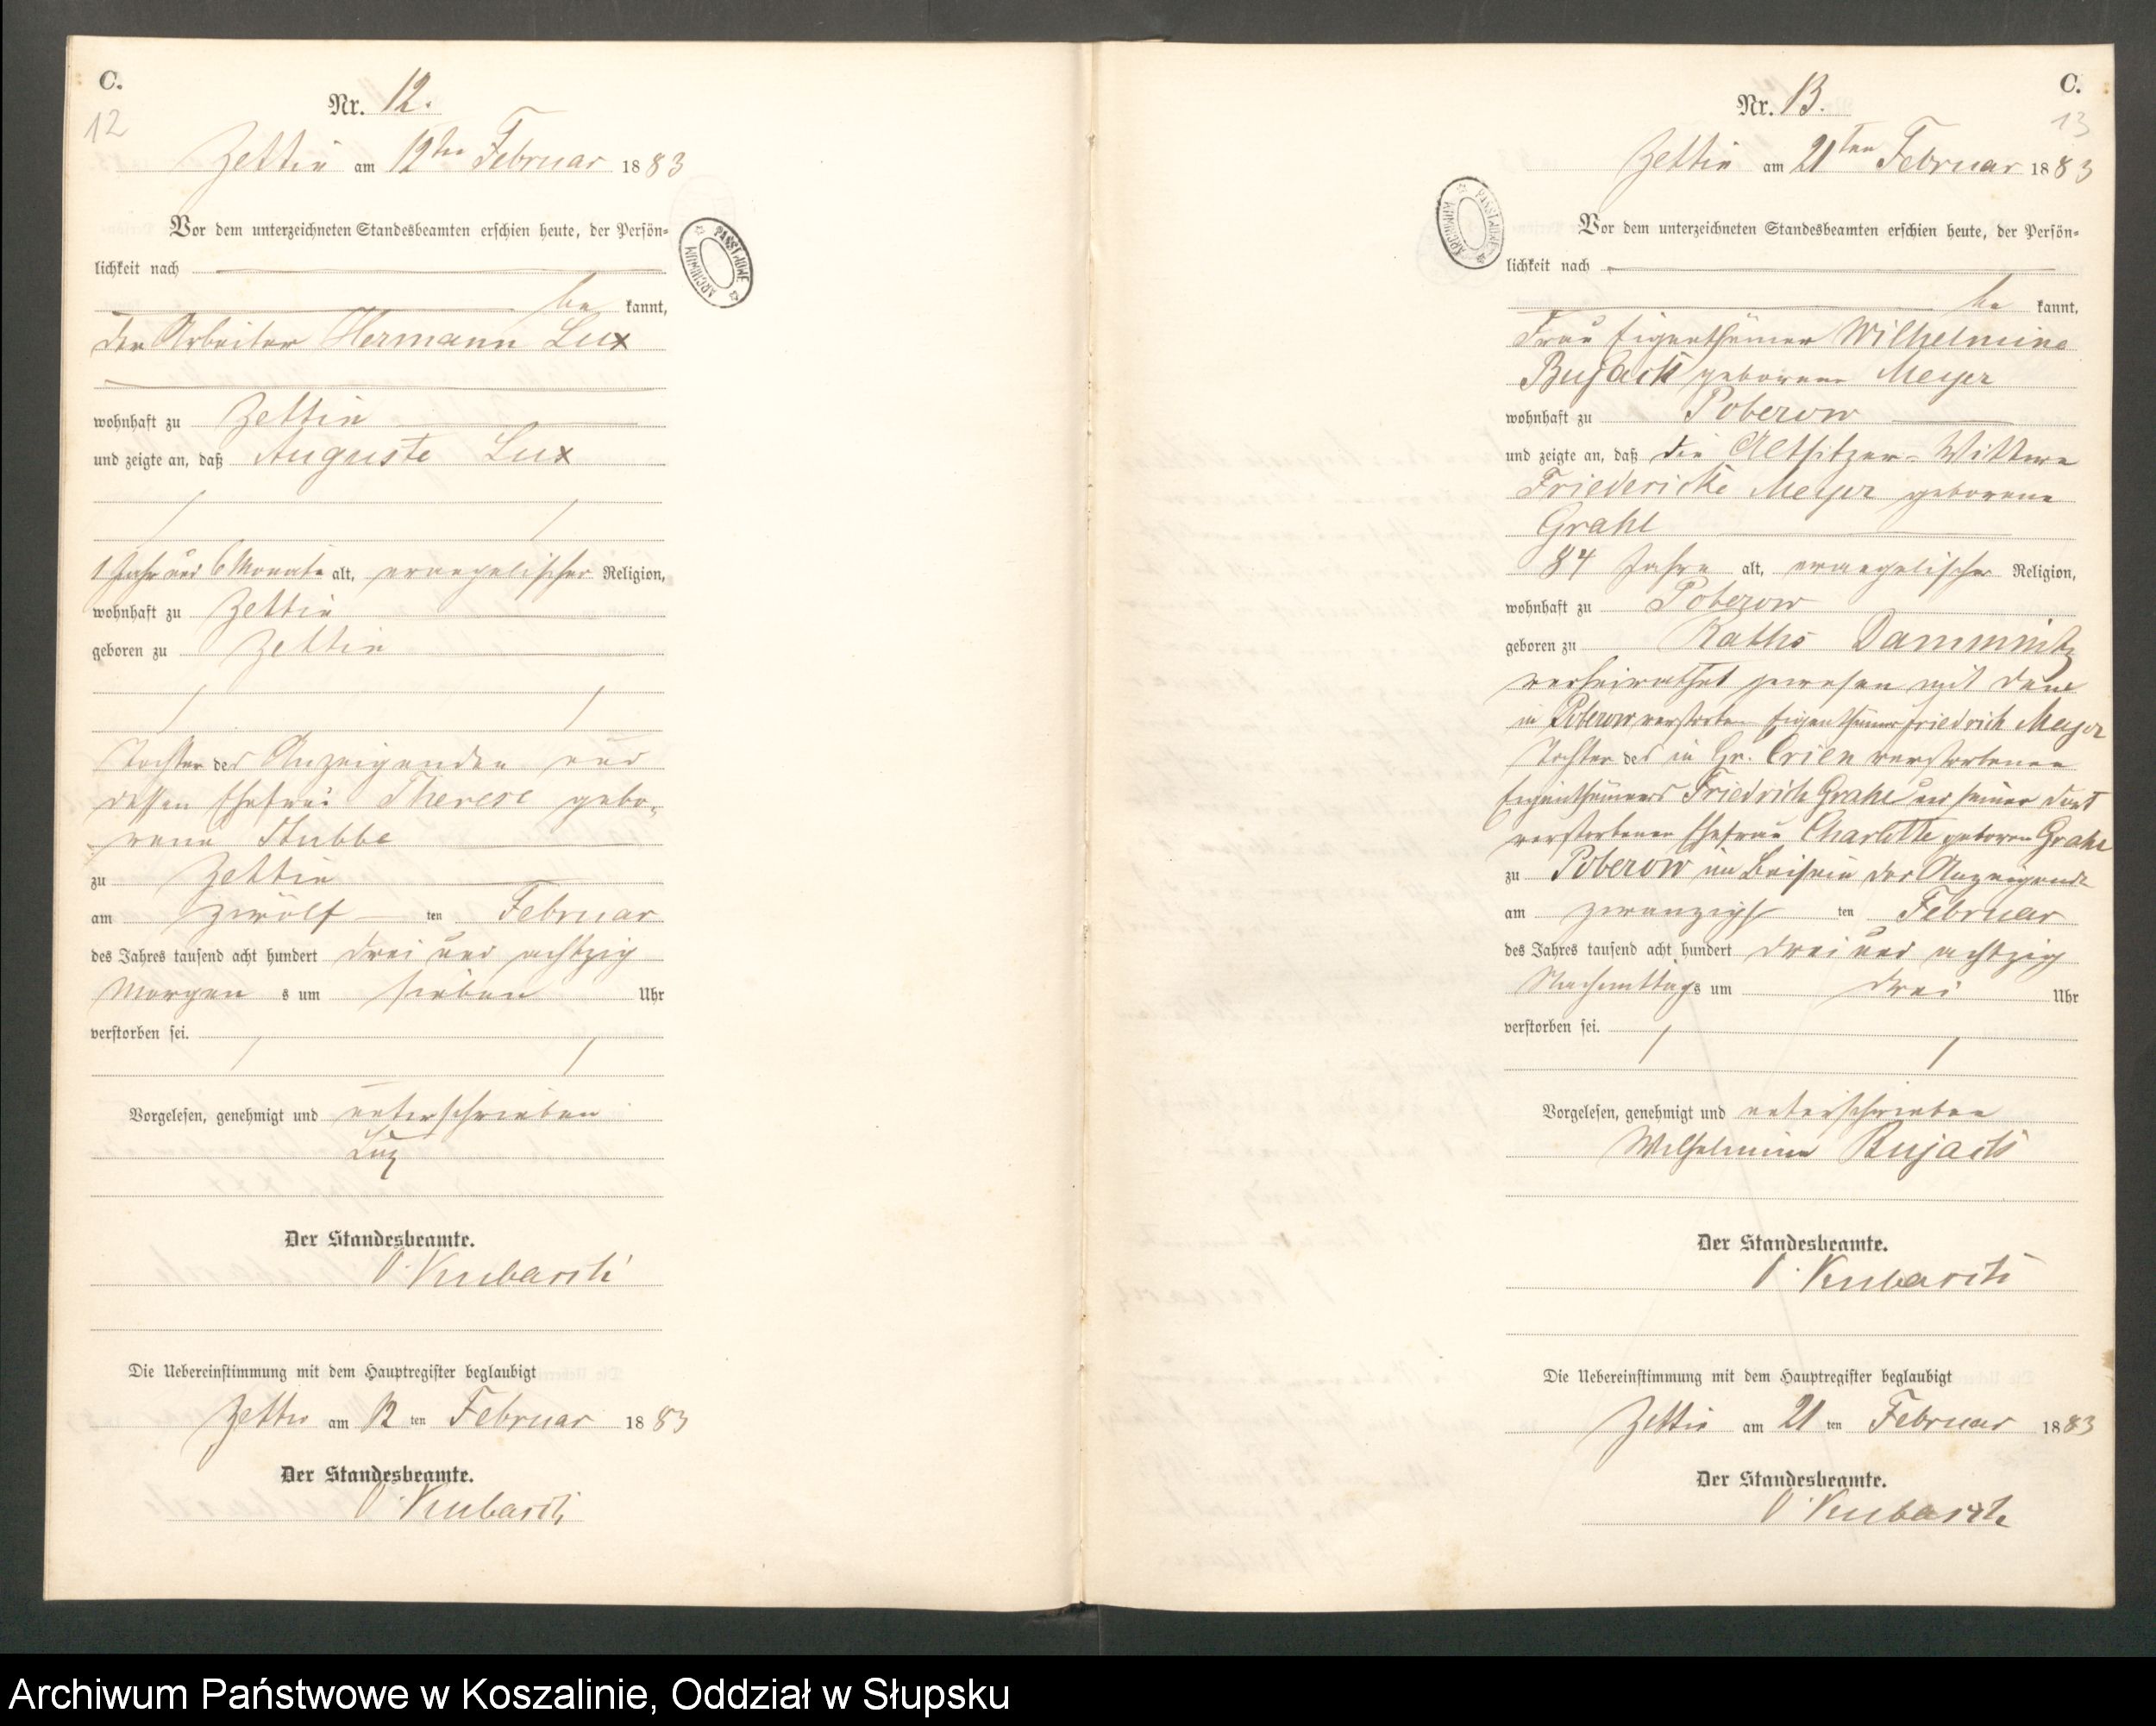 C.
12
Nr. 12.
Zettin am 12ten Februar 1883
Vor dem unterzeichneten Standesbeamten erschien heute, der Persön=
lichkeit nach
be kannt,
der Arbeiter Hermann Lux
wohnhaft zu Zettin
und zeigte an, daß Auguste Lux
1 Jahr und 6 Monate alt, evangelischer Religion,
wohnhaft zu Zettin
geboren zu Zettin
Tochter des Anzeigenden und
dessen Ehefrau Therese gebo-
rene Stubbe
zu Zettin
am zwölf ten Februar
des Jahres tausend acht hundert drei und achtzig
Morgen s um sieben Uhr
verstorben sei.
Vorgelesen, genehmigt und unterschrieben
Lux
Der Standesbeamte.
Die Uebereinstimmung mit dem Hauptregister beglaubigt
Zettin am 12 ten Februar 1883
Der Standesbeamte.
C.
13
Nr. 13.
Zettin am 21ten Februar 1883
Vor dem unterzeichneten Standesbeamten erschien heute, der Persön=
lichkeit nach
be kannt,
Frau Eigenthümer Wilhelmine
Bujack geborene Meyer
wohnhaft zu Poberow
und zeigte an, daß die Altsitzer-Wittwe
Friedericke Meyer geborene
Grahl
84 Jahre alt, evangelischer Religion,
wohnhaft zu Poberow
geboren zu Raths Dammnitz
verheirathet gewesen mit dem
in Poberow verstorbenen Eigenthümer Friedrich Meyer
Tochter des in Gr. Crien verstorbenen
Eigenthümers Friedrich Grahl und seiner dort
verstorbenen Ehefrau Charlotte geboren Grahl
zu Poberow im Beisein der Anzeigende
am zwanzigs ten Februar
des Jahres tausend acht hundert drei und achtzig
Nachmittags um drei Uhr
verstorben sei.
Vorgelesen, genehmigt und unterschrieben
Wilhelmine Bujack
Der Standesbeamte.
Die Uebereinstimmung mit dem Hauptregister beglaubigt
Zettin am 21 ten Februar 1883
Der Standesbeamte.
Archiwum Państwowe w Koszalinie, Oddział w Słupsku